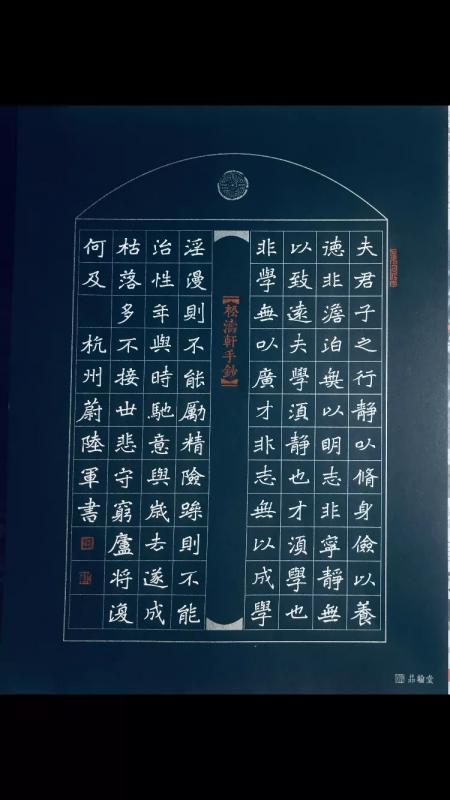 夫君子之行靜㠯脩身儉以養
徳非澹泊無以明志非寧靜無
以致遠夫學湏靜也才湏學也
非學無㠯廣才非志無以成學
【松濤軒手鈔】
淫漫則不能勵精險躁則不能
治性年與時馳意與歲去遂成
枯落多不接世悲守窮廬將復
何及 杭州蔚陸軍書